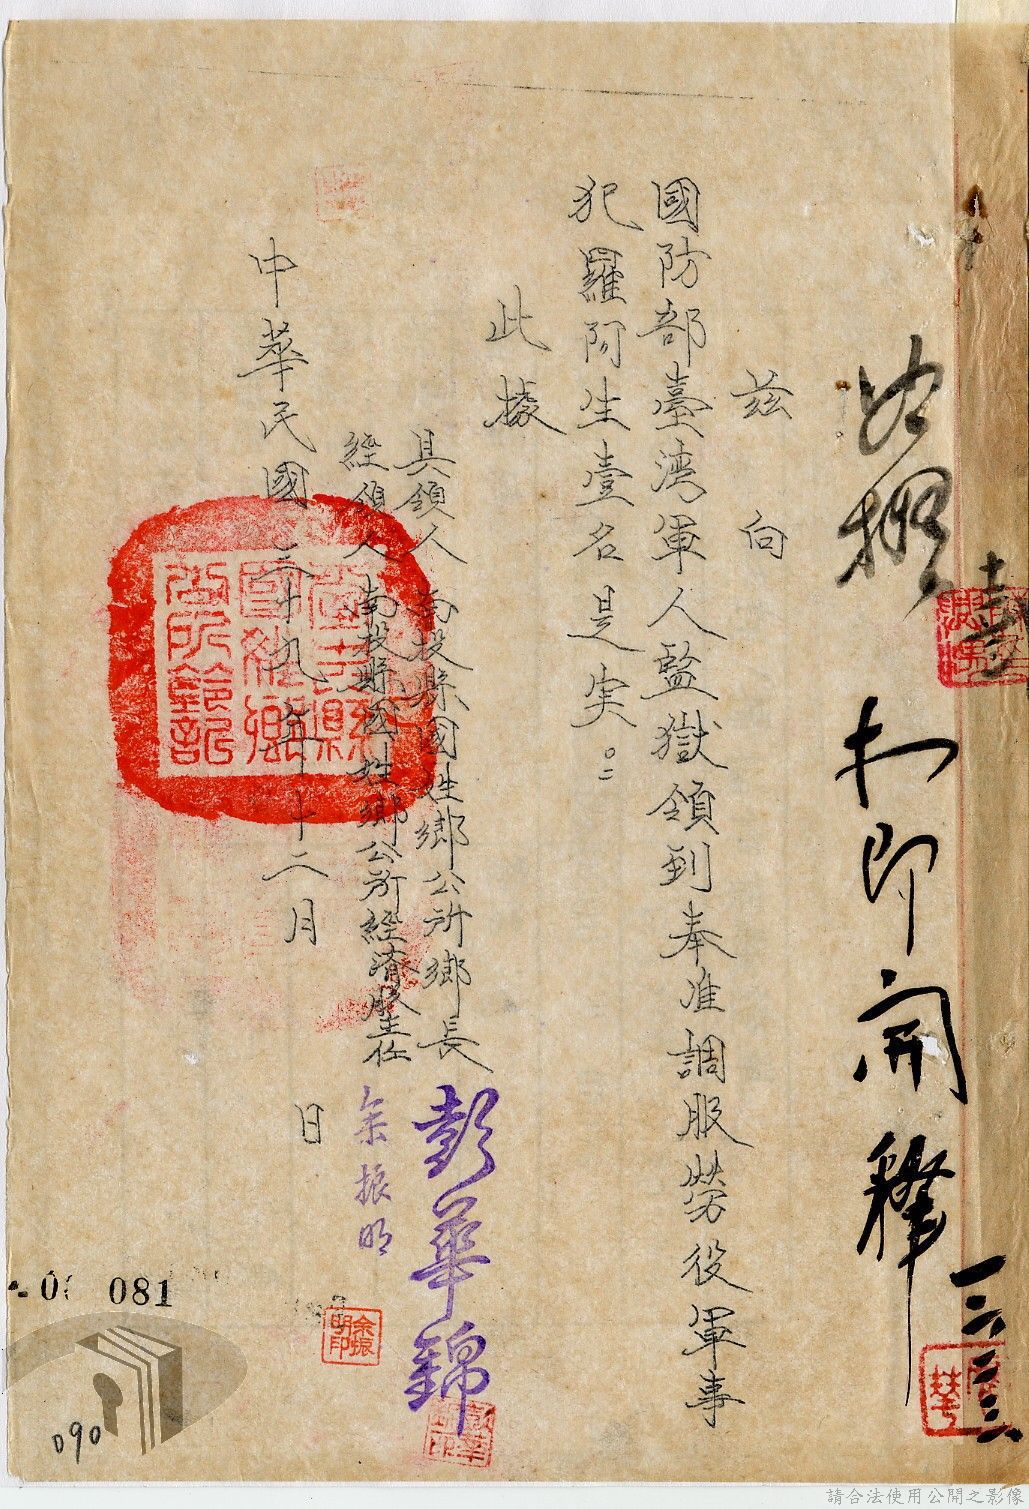 兹向
國防部臺湾軍人監獄領到奉准調服勞役軍事
犯羅阿生壹名是实。
此據
具領人南投縣國姓鄉公所鄉長彭華錦
經領人南投縣國姓鄉公所經濟股主任余振明
中華民國三十九年十二月 日
即開釋
081
090
余振明印
請合法使用公開之影像